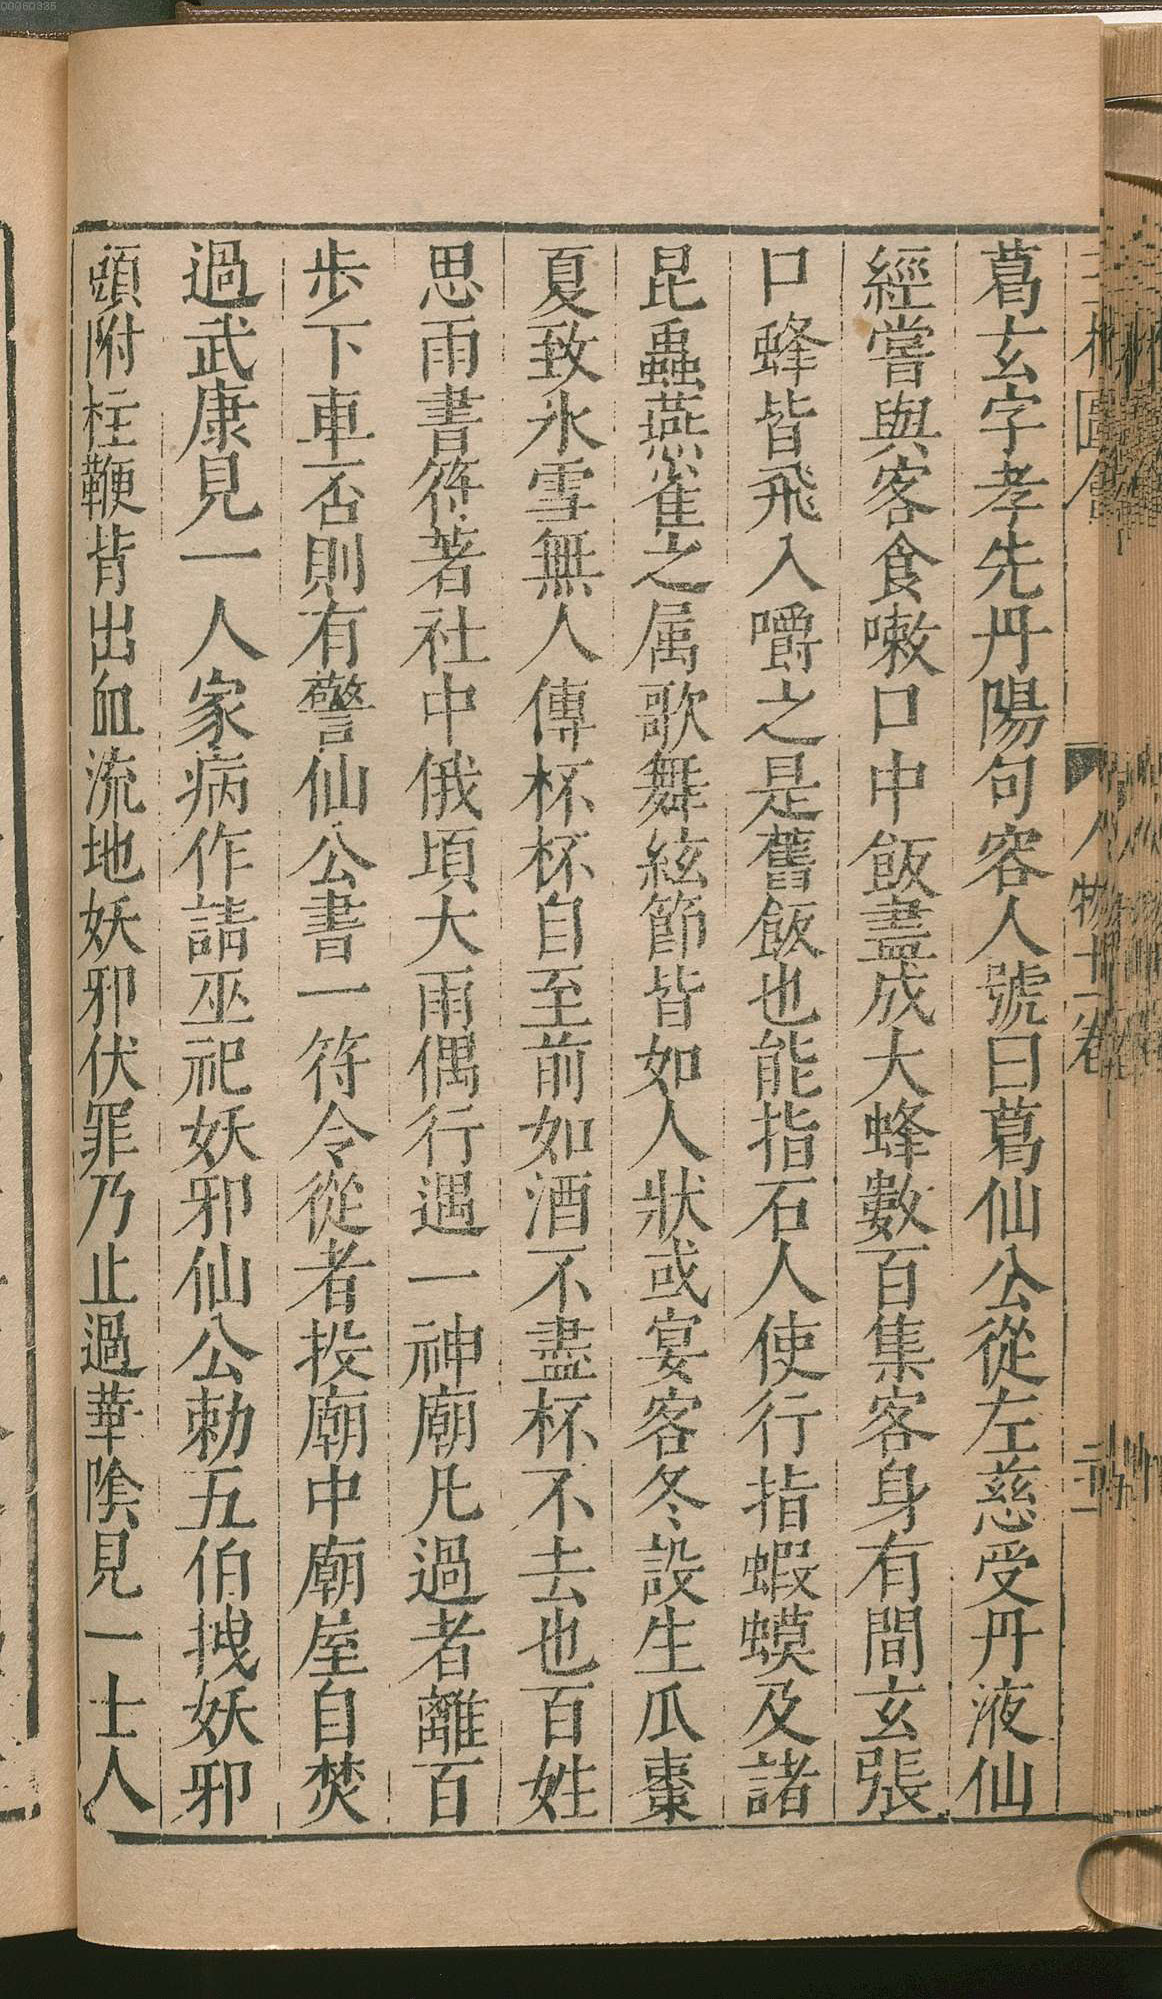 00060335
三才圖會 人物十一卷
葛玄字孝先丹陽句容人號曰葛仙公從左慈受丹液仙
經嘗與客食嗽口中飯盡成大蜂數百集客身有間玄張
口蜂皆飛入嚼之是舊飯也能指石人使行指蝦蟆及諸
昆蟲燕雀之属歌舞絃節皆如人狀或宴客冬設生瓜棗
夏致氷雪無人傳杯杯自至前如酒不盡杯不去也百姓
思雨書符著社中俄頃大雨偶行遇一神廟凡過者離百
步下車否則有警仙公書一符令從者投廟中廟屋自焚
過武康見一人家病作請巫祀妖邪仙公勅五伯拽妖邪
頭附柱鞭背出血流地妖邪伏罪乃止過華陰見一士人